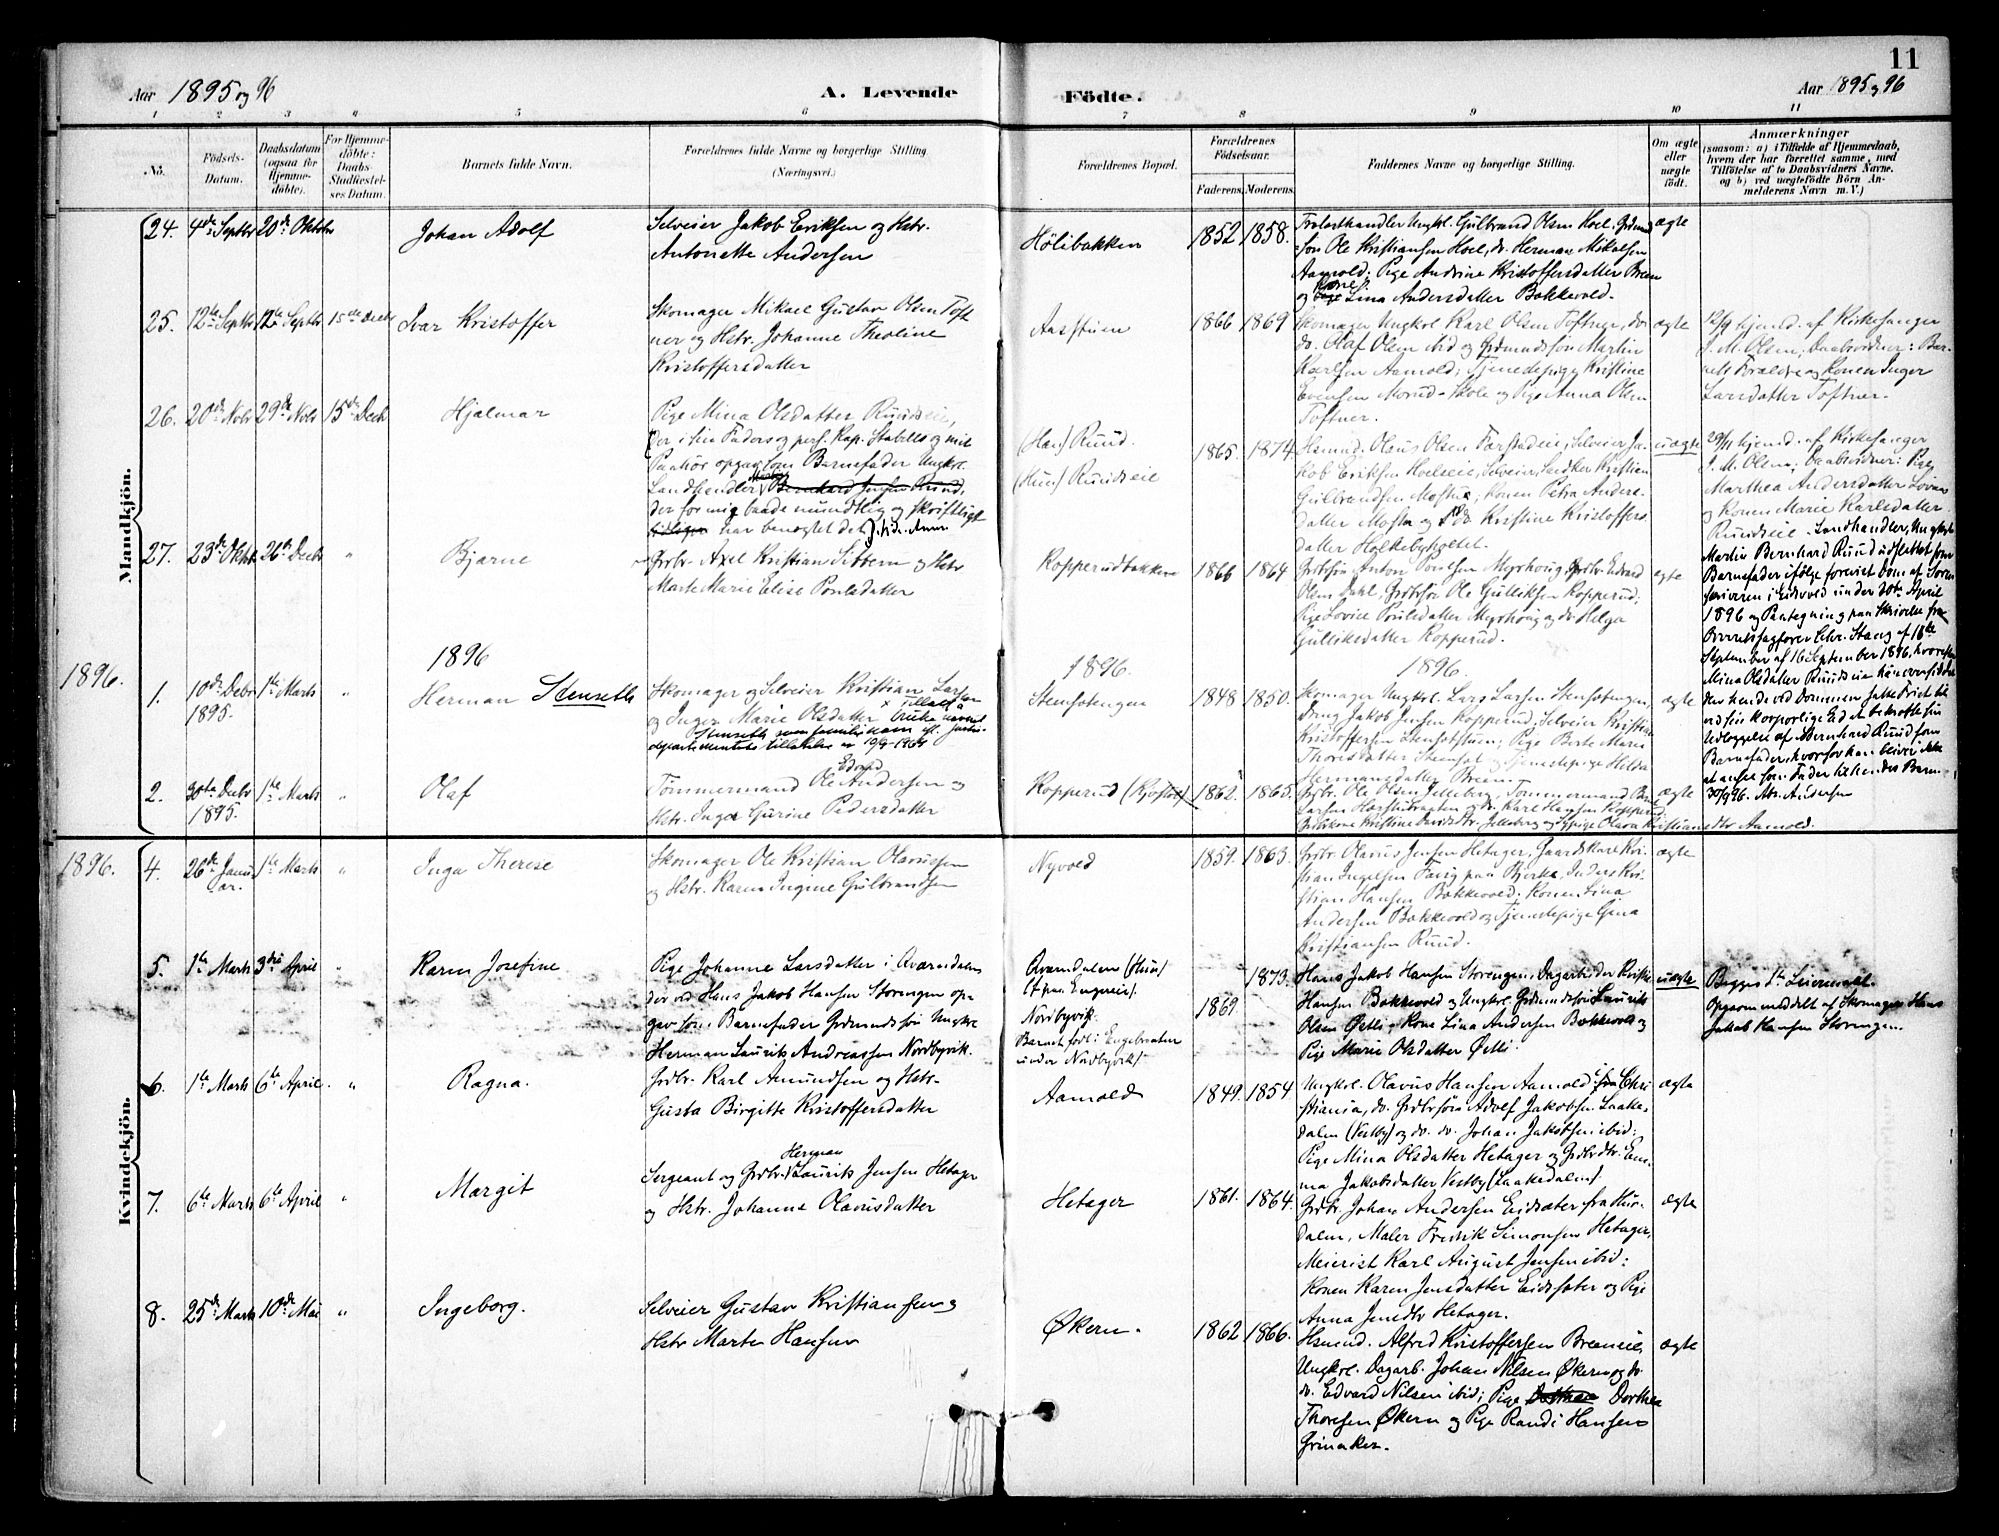 11
Aar 1895 og 96
A. Levende
Födte.
Aar 1895 og 96
1 2 3 4 5 6 7 8 9 10 11
No.
Födsels-
Datum.
Daabsdatum
(ogsaa for
Hjemme-
döbte).
For Hjemme-
döbte:
Daabs-
Stadfæstel-
ses Datum.
Barnets fulde Navn.
Forældrenes fulde Navne og borgerlige Stilling
(Næringsvei.)
Forældrenes Bopæl.
Forældrenes
Födselsaar.
Faderens. Moderens.
Faddernes Navne og borgerlige Stilling.
Om ægte
eller
uægte
födt.
Anmærkninger
(saasom: a) i Tilfælde af Hjemmedaab,
hvem der har forrettet samme, med
Tilföielse af to Daabsvidners Navne,
og b) ved uægtefödte Börn An-
melderens Navn m. V.)
Mandkjön.
24. 4de Septbr 20de Oktbr
Johan Adolf
Selveier Jakob Eriksen og Hstr.
Antonette Andersen
Hölibakken
1852 1858.
Trælasthandler Ungkl. Gulbrand Olsen Hoel, Grdmand-
sön Ole Kristiansen Hoel, do. Herman Mikalsen
Aamold; Pige Andrine Kristoffersdatter Breen
og Kone Lina Andersdatter Bakkevold.
ægte
25. 12te Septbr 12te Septbr 15de Decb
Ivar Kristoffer
Skomager Mikael Gustav Olsen Toft
ner og Hstr. Johanne Theoline
Kristoffersdatter
Aasstuen
1866 1869
Skomager Ungkl Karl Olsen Toftner, do
do. Olaf Olsen ibid og Grdmandssön Martin
Karlsen Aamold; Tjenestepige Kristine
Evensen Morud-Skole og Pige Anna Olsen
Toftner.
ægte
12/9 hjemd. af Kirkesanger
J. M. Olsen; Daabsvidner: Bar-
nets Forældre og Konen Inger
Larsdatter Toftner.
26. 20de Novb 29de Novb 15de Decb
Hjalmar
Pige Mina Olsdatter Ruudseie,
der i sin Faders og pers. Kap. Stabells og mit
Paahör opgav som Barnefader Ungkr.
Landhandler Bernhard Jensen Ruud,
der for mig baade mundtlig og skriftligt
har benegtet det
(Han) Ruud.
(Hun) Ruudseie
1865. 1874
Husmd. Olaus Olsen Farstadeie, Selveier Ja-
kob Eriksen Hoelseie, Selveier Snedker Kristian
Gulbrandsen Mostue; Konen Petra Anders-
datter Mostu og do Kristine Kristoffers
datter Holkebyholtet.
uægte
29/11 hjemd. af Kirkesanger
J. M. Olsen; Daabsvidner: Pige
Marthea Andersdatter
og Konen Marie Karlsdatter
Ruudseie. Landhandler, Ungkar
Martin Bernhard Ruud udslettet som
Barnefader ifölge forevist Dom af Soren-
skriveren i Eidsvold under 20de April
1896 og Paategning paa Skrivelse fra
Overretssagförer Chr. Stang af 18de
September af 16 September 1896, hvorefter
Mina Olsdatter Ruudseie
den hende ved Dommen satte Frist til
ved sin korporlige Ed at bekræfte sin
Udlæggelse af Bernhard Ruud som
Barnefader, hvorfor han bliver ikke
at anse som Fader til hendes Barn.
30/9 96. Andersen
27. 23de Oktbr 26de Decb "
Bjarne
Grdbr. Axel Kristian Sibbern og Hstr
Marte Marie Elise Poulsdatter
Kopperudbakken
1866 1864
Grdbrsön Anton Poulsen Myrhoug, Grdbr. Edvard
Olsen Dahl, Grdbrsön Ole Gulliksen Kopperud;
Pige Lovise Poulsdatter Myrhoug og do. Helga
Gulliksdatter Kopperud.
ægte
1896. 1896 1896. 1896.
1. 10de Decbr 1895. 1ste Marts "
Herman Stenseth
Skomager og Selveier Kristian Larsen
og Inger Marie Olsdatter x Tillatt å bruke navnet
Stenseth som familienavn ifl. Justis-
departementets tillatelse av 19/9-1964
Stensetengen
1848 1850.
Skomager Ungkrl. Lars Larsen Stensetengen,
Dreng Jakob Jensen Kopperud; Selveier Kristian
Kristoffersen Stensetstuen; Pige Berte Marie
Thoresdatter Stenset og Tjenestepige Hilda
Hermansdatter Breen
ægte
2. 30te Decbr 1895. 1ste Marts "
Olaf
Tömmermand Ole Edvard Andersen og
Hstr. Inger Gurine Pedersdatter
Kopperud
1862. 1865.
Grdbr. Ole Olsen Jelleberg, Tömmermand
Larsen og do. Karl Hansen Kopperud;
ægte
Kvindekjön.
1896.
4. 26de Janu-
ar. 1ste Marts "
Inga Therese
Skomager Ole Kristian Olavussen
og Hstr. Karen Ingine Gulbrandsen
Nyvold
1859. 1863.
Grdbr. Olavus Jensen Hetager, Gaardskarl Kri-
stian Ingelsen Favig paa Bjerke, Inders Kri-
stian Hansen Bakkevold; Konen Lina
Andersen Bakkevold og Tjenestepige Gina
Kristiansen Ruud.
ægte
5. 1ste Marts 3die April "
Karen Josefine
Pige Johanne Larsdatter i Qværndalen
der ved Hans Jakob Hansen Storengen op-
gav som Barnefader Grdmandssön Ungkr
Herman Laurits Andreassen Nordbyvik.
Qværndalen (Hun)
(fra Engeseie).
Nordbyvik.
Barnet födt i Engebraaten
under Nordbyvik
1869. 1873.
Hans Jakob Hansen Storengen, Dagarbeider Kristian
Hansen Bakkevold og Ungkrl. Grdmandssön Laurits
Olsen Öetli; Kone Lina Andersen Bakkevold og
Pige Marie Olsdatter Öetli.
uægte
Begges 1ste Leiermaal.
Opgaven meddelt af Skomager Hans
Jakob Hansen Storengen.
6. 1ste Marts 6te April. "
Ragna.
Grdbr. Karl Amundsen og Hstr.
Gusta Birgitte Kristoffersdatter
Aamold
1849. 1854.
Ungkrl. Olavus Hansen Aamold i Chri
stiania, do. Grdbrsön Adolf Jakobsen Laake-
dalen (Vestby) og do. do. Johan Jakobsen ibid;
Pige Mina Olsdatter Hetager og Grdbrdtr. Em-
ma Jakobsdatter Vestby (Laakedalen).
ægte
7. 6te Marts 6te April "
Margit
Sergeant og Grdbr. Herman Laurits Jensen Hetager
og Hstr. Johanne Olavusdatter
Hetager
1861. 1864.
Grdbr. Johan Andersen Eidsæter fra Hur-
dalen, Maler Fredrik Simonsen Hetager,
Meierist Karl August Jensen ibid;
Konen Karen Jensdatter Eidsæter og Pige
Anna Jensdtr Hetager.
ægte
8. 25de Marts 10de Mai "
Ingeborg.
Selveier Gustav Kristiansen og
Hstr Marte Hansen
Ökern.
1862 1866.
Husmd. Alfred Kristoffersen Breeneie,
Ungkrl. Dagarb. Johan Nilsen Ökern og do.
do. Edvard Nilsen ibid; Pige Dorthea
Thoresen Ökern og Pige Randi Hansen
Grinaker.
ægte